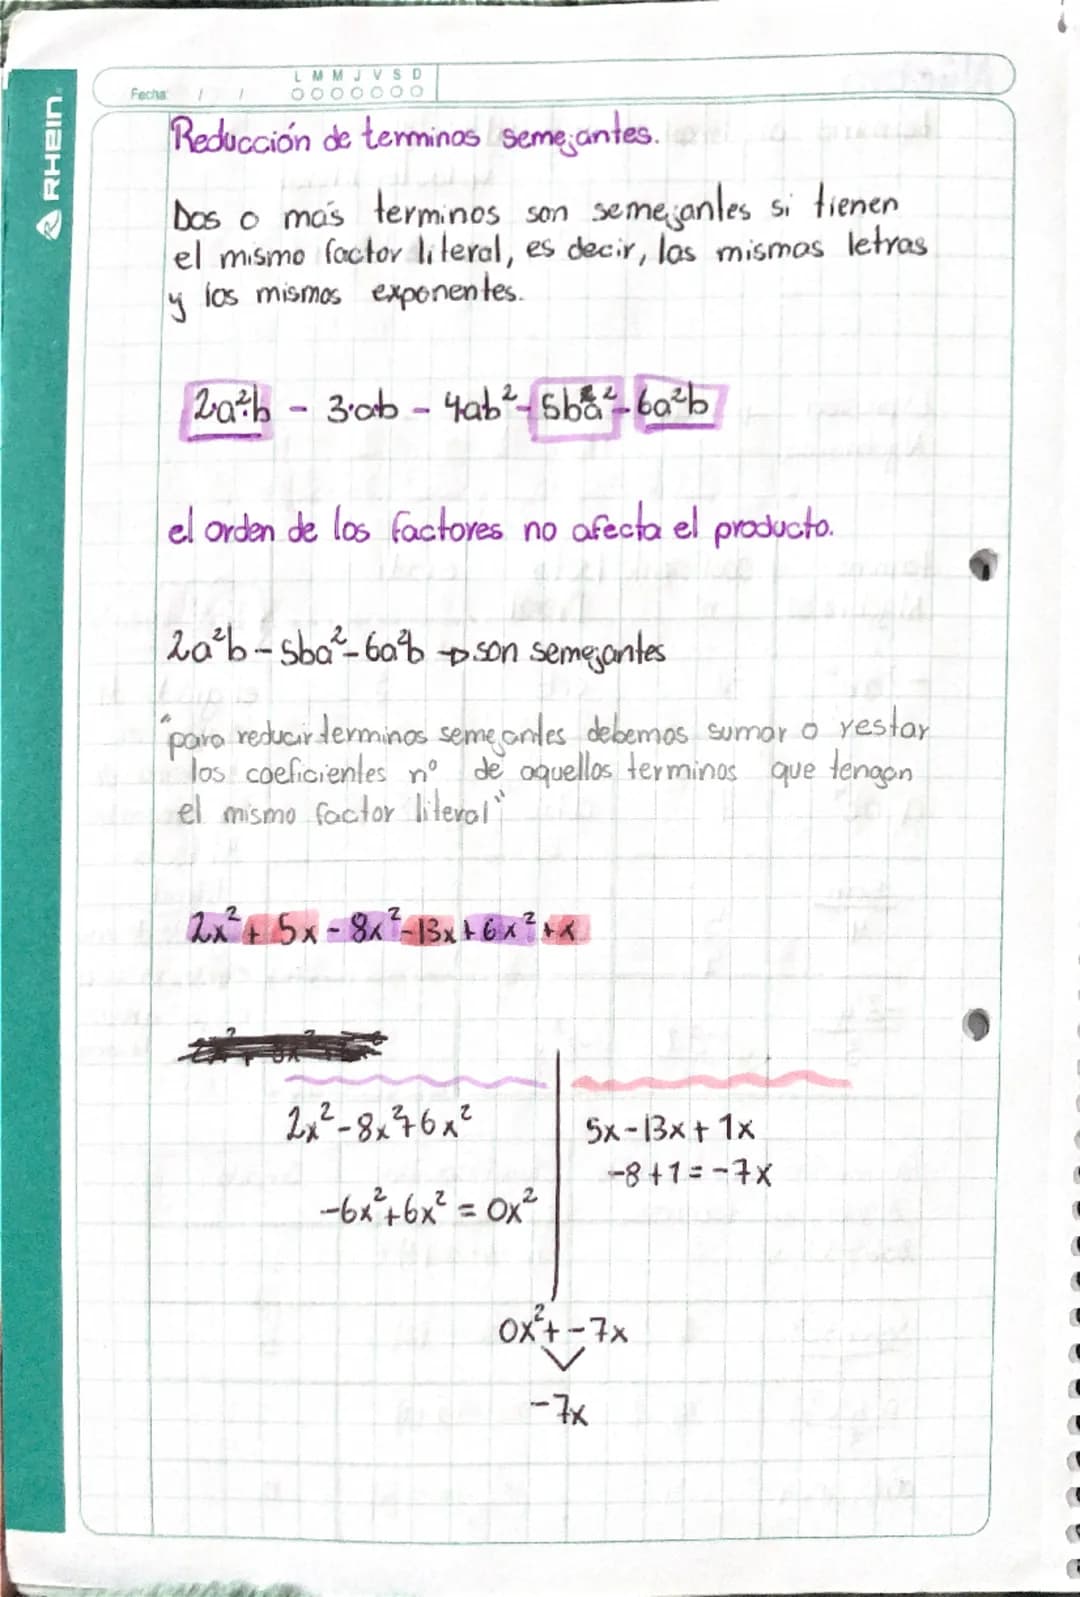 RHEIN
L M M J V S D
Fecha: / /
Reducción de terminos semejantes.
Dos o más terminos son semejantes si tienen
el mismo factor literal, es decir, las mismas letras
y los mismos exponentes.
2a²b - 3·ab - 4ab² - 5ba² - 6a²b
el orden de los factores no afecta el producto.
2a²b - 5ba² - 6a²b → son semejantes
"para reducir terminos semejantes debemos sumar o restar
los coeficientes nº de aquellos terminos que tengan
el mismo factor literal"
2x² + 5x - 8x² - 13x + 6x² + x
2x² - 8x² + 6x²
-6x² + 6x² = 0x²
5x - 13x + 1x
-8 + 1 = -7x
0x² + -7x
-7x